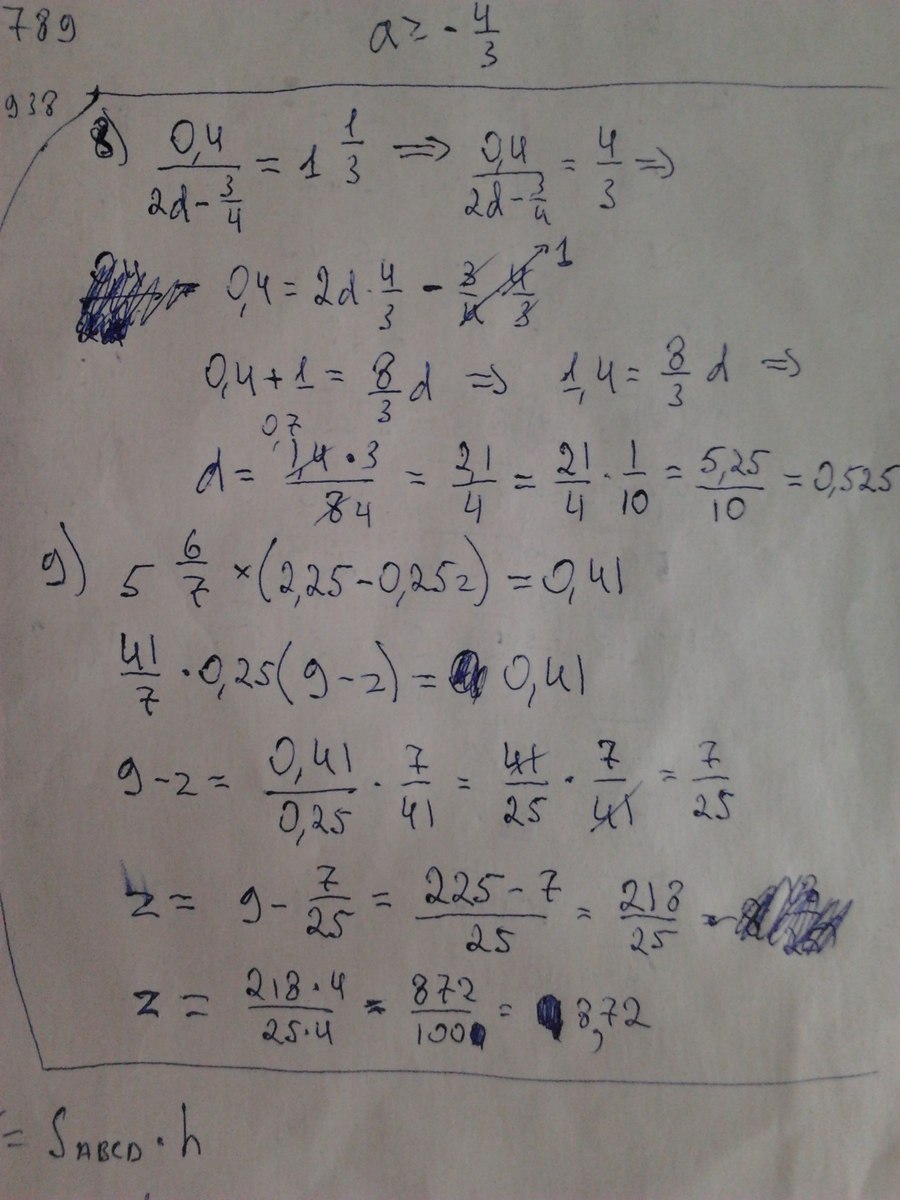 789
a = - 4/3
938
8) 0,4/(2d - 3/4) = 1 1/3 ⇒ 0,4/(2d - 3/4) = 4/3 ⇒
0,4 = 2d · 4/3 - 3/4 4/3 1
0,4 + 1 = 8/3 d ⇒ 1,4 = 8/3 d ⇒
0,7
d = 1,4 · 3/8 4 = 21/4 = 21/4 · 1/10 = 5,25/10 = 0,525
9) 5 6/7 × (2,25 - 0,25z) = 0,41
41/7 · 0,25(9 - z) = 0,41
9 - z = 0,41/0,25 · 7/41 = 41/25 · 7/41 = 7/25
z = 9 - 7/25 = (225 - 7)/25 = 218/25
z = 218·4/25·4 = 872/100 = 8,72
= S ABCD · h